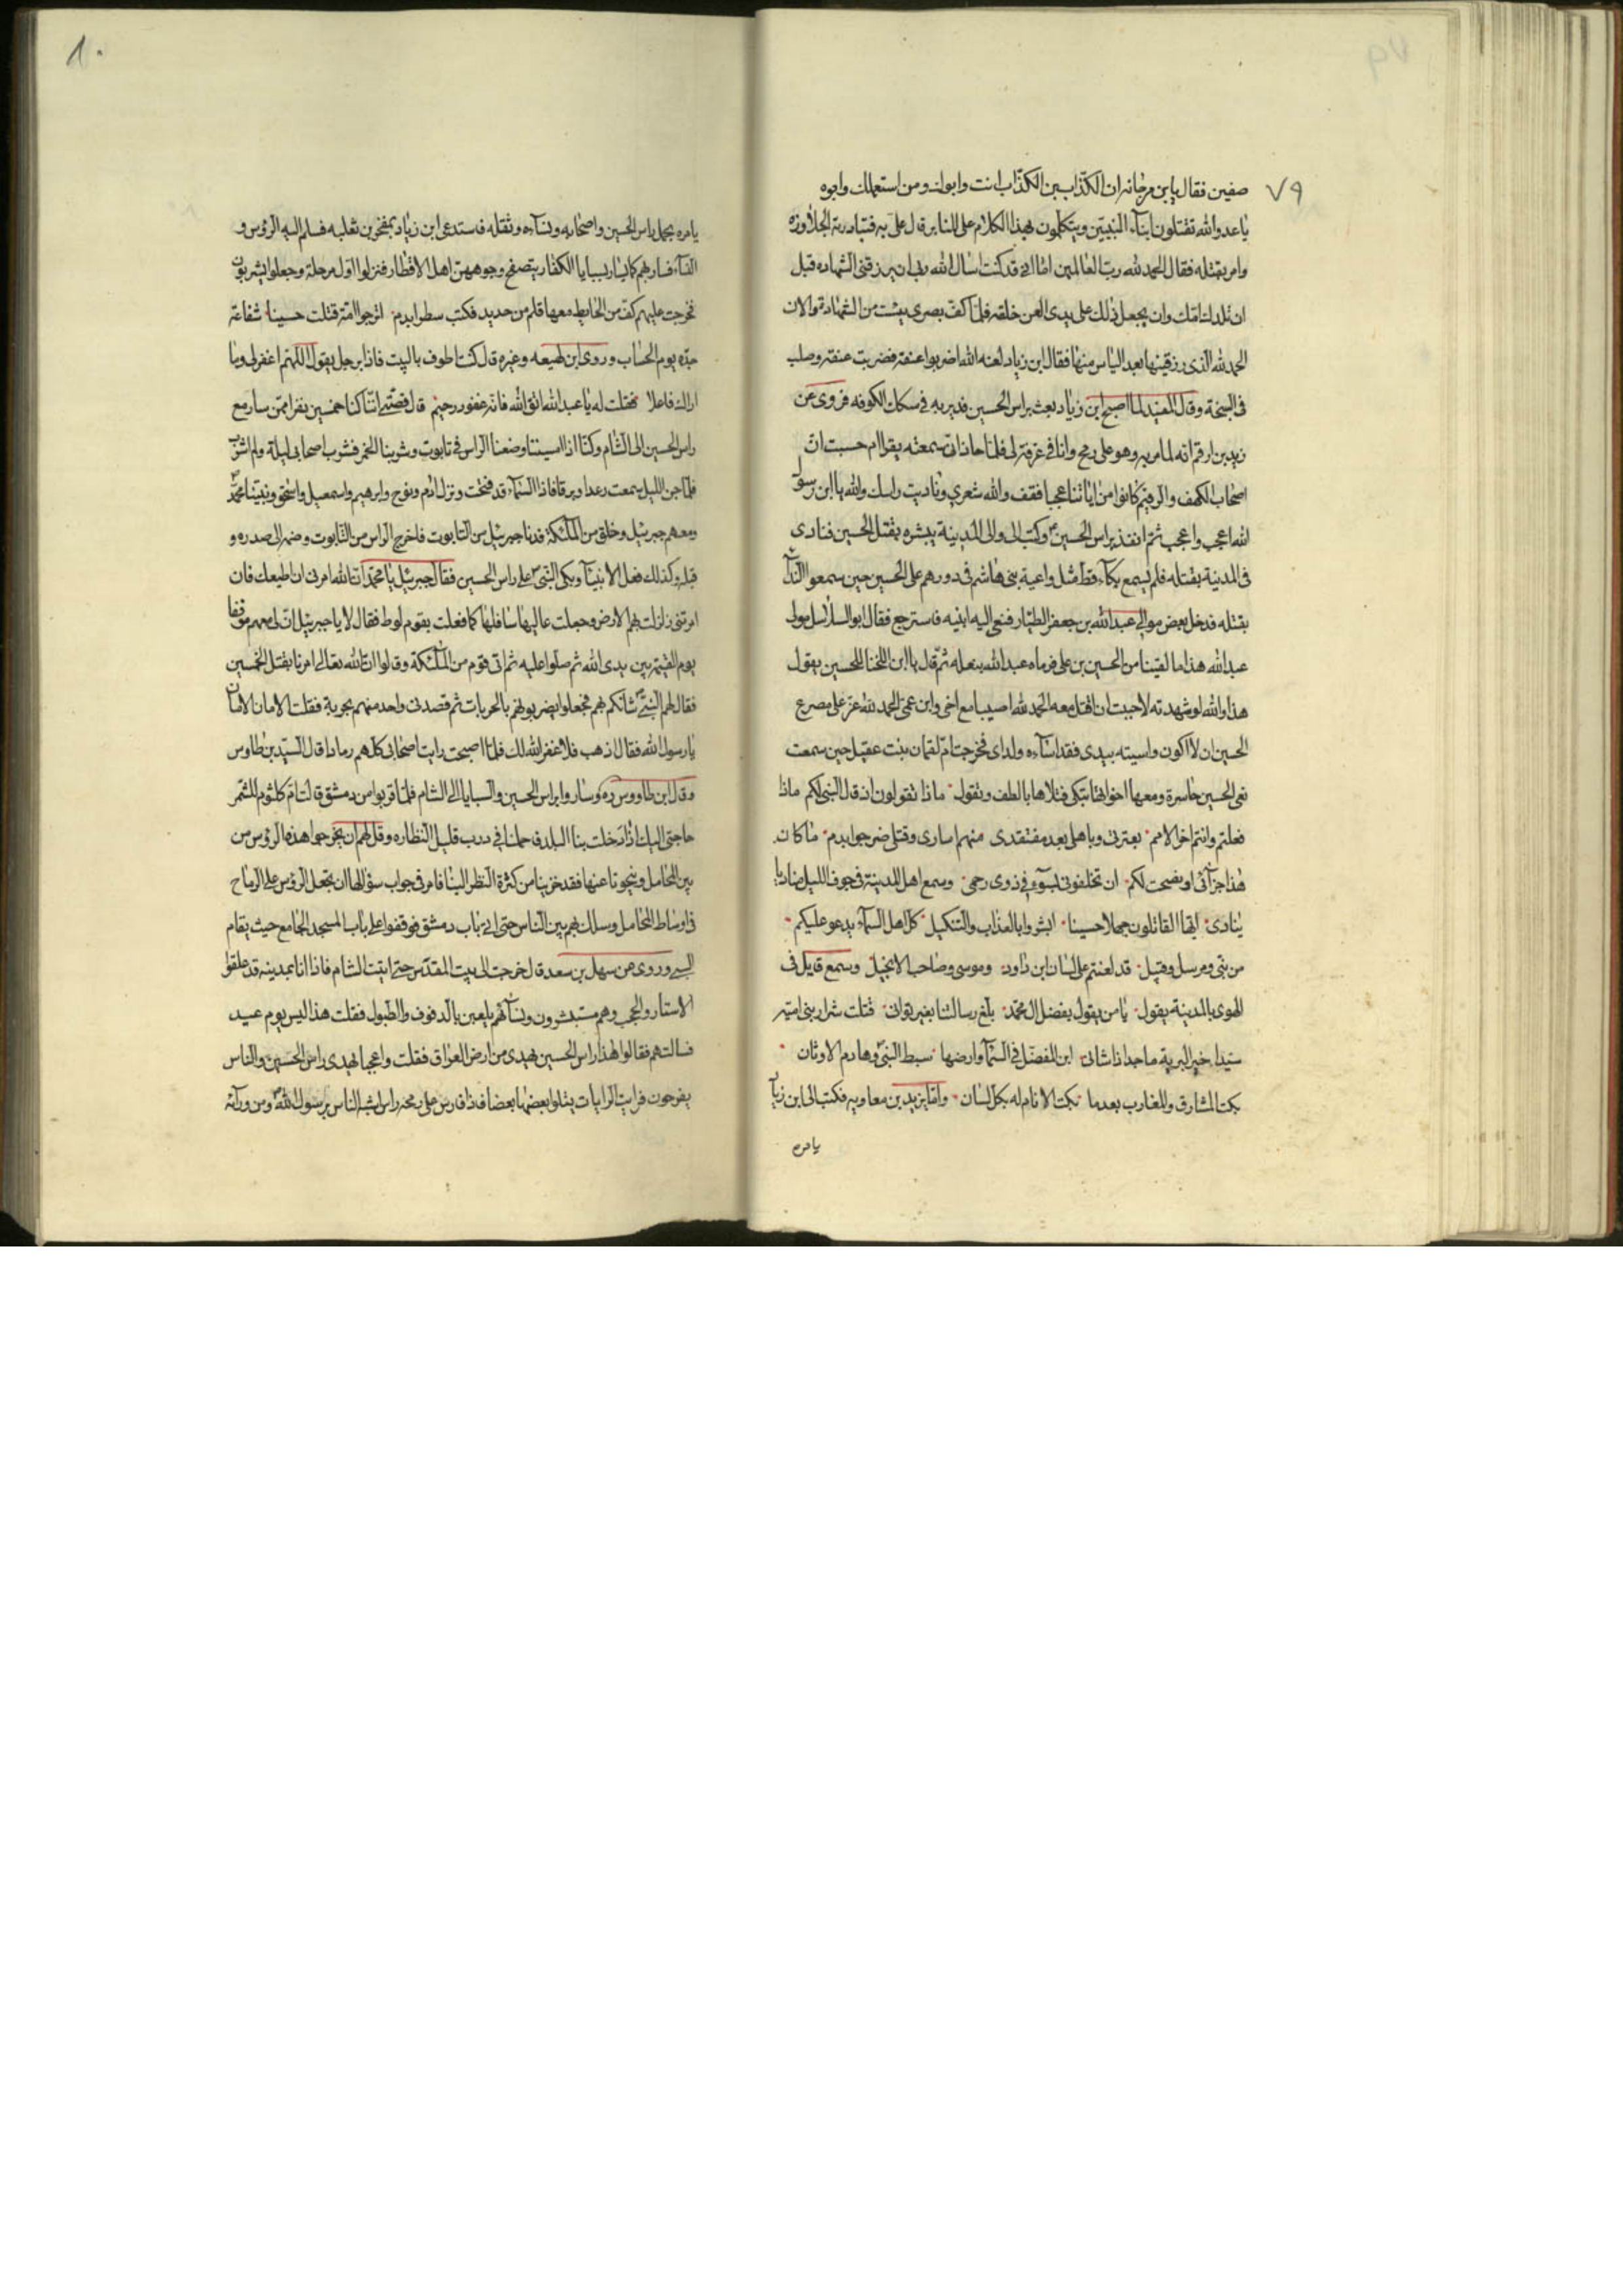 ٧٩
صفين فقال يابن مرجانه ان الكذاب بن الكذاب انت وابوك ومن استعملك وابوه
يا عدو الله تقتلون ابناء النبيين ويتكلمون بهذا الكلام على المنابر قال علىّ به فتبادرته الجلاوزه
وامر بقتله فقال الحمد لله ربّ العالمين اما انى قد كنت اسال الله ربى ان يرزقنى الشهاده قبل
ان تلدك امّك وان يجعل ذلك على يدى العن خلقه فلمّا كفّ بصرى يئست من الشهادة والان
الحمد لله الذى رزقنيها بعد الياس منها فقال ابن زياد لعنه الله اضربوا عنقه فضربت عنقه وصلب
فى السبخة وقال المفيد لما اصبح ابن زياد بعث براس الحسين فدير به فى سكك الكوفه فروى عن
زيد بن ارقم انه لما مر به وهو على رمح وانا فى غرفة لى فلمّا حاذانى سمعته يقرا ام حسبت انّ
اصحاب الكهف والرقيم كانوا من اياتنا عجبا فقف والله شعرى وناديت راسك والله يا ابن رسول
الله اعجب واعجب ثمّ انفذ براس الحسين وكتب الى والى المدينة يبشره بقتل الحسين فنادى
فى المدينة بقتله فلم يسمع بكاء قط مثل واعية بنى هاشم فى دورهم على الحسين حين سمعوا النداء
بقتله فدخل بعض موالى عبد الله بن جعفر الطيّار فنعى اليه ابنيه فاسترجع فقال ابو السلاسل مولى
عبد الله هذا ما لقينا من الحسين بن على فرماه عبد الله بنعله ثمّ قال يا ابن اللخنا للحسين يقول
هذا والله لو شهدته لاحببت ان اقتل معه الحمد لله اصيبا مع اخى وابن عمى الحمد لله عزّ على مصرع
الحسين ان لا اكون واسيته بيدى فقد اساءه ولداى فخرجت امّ لقمان بنت عقيل حين سمعت
نعى الحسين حاسرة ومعها اخواتها تبكى قتلاها بالطف وتقول ماذا تقولون اذ قال النبى لكم ماذا
فعلتم وانتم اخر الامم بعترتى وباهلى بعد مفتقدى منهم اسارى وقتلى ضرجوا بدم ما كان
هذا جزائى اذ نصحت لكم ان تخلفونى بسوء فى ذوى رحمى وسمع اهل المدينة فى جوف الليل مناديا
ينادى ايها القاتلون جهلا حسينا ابشروا بالعذاب والتنكيل كل اهل السماء يدعو عليكم
من نبى ومرسل وقبيل قد لعنتم على لسان ابن داود وموسى وصاحب الانجيل وسمع قايل فى
الهوى بالمدينة يقول يا من يقول بفضل ال محمد بلّغ رسالتنا بغير توانى قتلت شرار بنى اميّه
سيّدا خير البرية ماجدا ذا شانى ابن المفضّل فى السماء وارضها سبط النبى وهادم الاوثان
بكت المشارق والمغارب بعدما بكت الانام له بكل لسان وامّا يزيد بن معاويه فكتب الى ابن زياد
يامره
يامره بحمل راس الحسين واصحابه ونساءه وثقله فاستدعى ابن زياد بمخفر بن ثعلبه فسلم اليه الرؤس و
النساء فسار بهم كما يسار بسبايا الكفار يتصفح وجوههنّ اهل الاقطار فنزلوا اول مرحلة وجعلوا يشربون
فخرجت عليهم كف من الحايط معها قلم من حديد فكتب سطرا بدم اترجوا امّة قتلت حسينا شفاعة
جدّه يوم الحساب وروى ابن لهيعه وغيره قال كنت اطوف بالبيت فاذا برجل يقول اللهم اغفر لى وما
اراك فاعلا فقلت له يا عبد الله اتق الله فانه غفور رحيم قال قصّتى انّنا كنا خمسين نفرا ممّن سار مع
راس الحسين الى الشام وكنّا اذا امسينا وضعنا الراس فى تابوت وشربنا الخمر فشرب اصحابى ليلة ولم اشرب
فلمّا جن الليل سمعت رعدا وبرقا فاذا السماء قد فتحت ونزل ادم ونوح وابرهيم واسمعيل واسحق ونبيّنا محمّد
ومعهم جبرئيل وخلق من الملئكة فدنا جبرئيل من التابوت فاخرج الراس من التابوت وضمه الى صدره و
قبله وكذلك فعل الانبياء وبكى النبى على راس الحسين فقال جبرئيل يا محمد ان الله امرنى ان اطيعك فان
امرتنى زلزلت بهم الارض وجعلت عاليها سافلها كما فعلت بقوم لوط فقال لا يا جبرئيل ان لى معهم موقفا
يوم القيمة بين يدى الله ثم صلّوا عليه ثم اتى قوم من الملئكة وقالوا ان الله تعالى امرنا بقتل الخمسين
فقال لهم النبى شانكم بهم فجعلوا يضربونهم بالحربات ثم قصدنى واحد منهم بحربة فقلت الامان الامان
يا رسول الله فقال اذهب فلا غفر الله لك فلمّا اصبحت رايت اصحابى كلهم رمادا قال السيد بن طاوس
وقال ابن طاووس ره وساروا براس الحسين والسبايا الى الشام فلمّا قربوا من دمشق قالت امّ كلثوم للشمر
حاجتى اليك اذا دخلت بنا البلد فاحملنا فى درب قليل النظاره وقل لهم ان يخرجوا هذه الرؤس من
بين المحامل وينحونا عنها فقد خزينا من كثرة النظر الينا فامر فى جواب سؤالها ان يجعل الرؤس على الرماح
فى اوساط المحامل وسلك بهم بين الناس حتى اتى باب دمشق فوقفوا على باب المسجد الجامع حيث يقام
السبى وروى عن سهل بن سعد قال خرجت الى بيت المقدس حتى اتيت الشام فاذا انا بمدينه قد علقوا
الاستار والحجب وهم مستبشرون ونساءهم يلعبن بالدفوف والطبول فقلت هذا اليس يوم عيد
فسالتهم فقالوا هذا راس الحسين يهدى من ارض العراق فقلت واعجبا يهدى راس الحسين والناس
يفرحون فرايت الرايات يتلوا بعضها بعضا فاذا فارس على رمحه راس اشبه الناس برسول الله ومن ورآئه